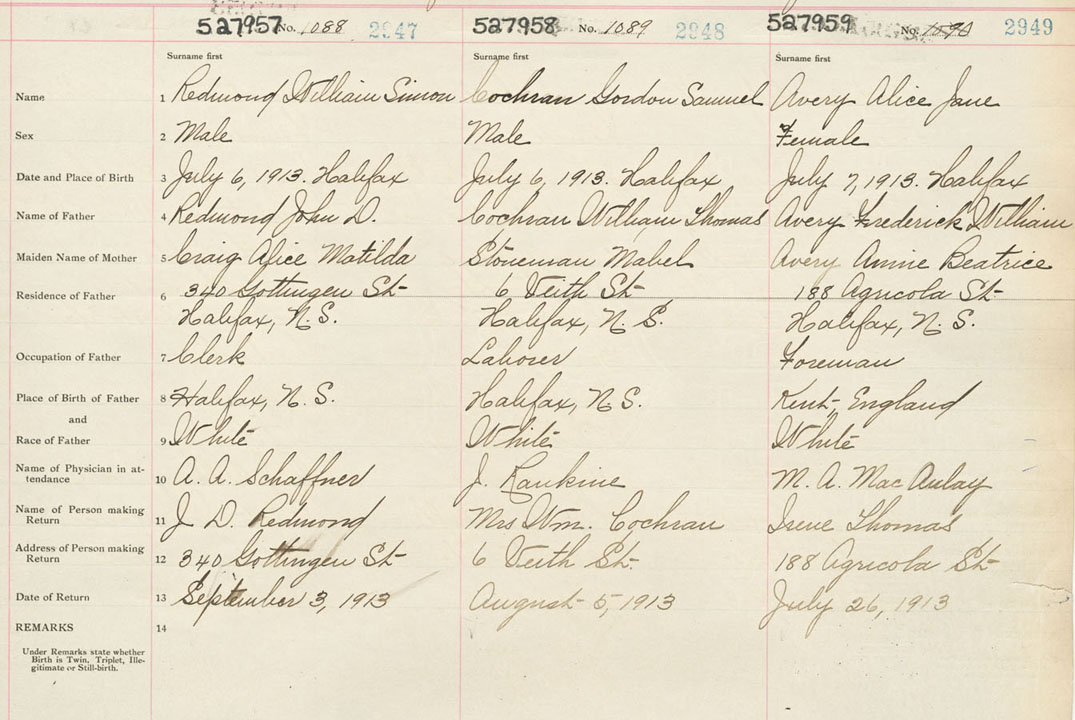 527957 No. 1088 2947 527958 No. 1089 2948 527959 No. 1090 2949
Surname first Surname first Surname first
Name 1 Redmond William Simon Cochran Gordon Samuel Avery Alice Jane
Sex 2 Male Male Female
Date and Place of Birth 3 July 6, 1913. Halifax July 6, 1913. Halifax July 7, 1913. Halifax
Name of Father 4 Redmond John D. Cochran William Thomas Avery Frederick William
Maiden Name of Mother 5 Craig Alice Matilda Stoneman Mabel Avery Annie Beatrice
Residence of Father 6 340 Gottingen St 6 Veith St 188 Agricola St
Halifax, N.S. Halifax, N.S. Halifax, N.S.
Occupation of Father 7 Clerk Laborer Foreman
Place of Birth of Father 8 Halifax, N.S. Halifax, N.S. Kent, England
and
Race of Father 9 White White White
Name of Physician in at-
tendance 10 A. A. Schaffner J. Rankine M. A. MacAulay
Name of Person making
Return 11 J. D. Redmond Mrs Wm. Cochran Irene Thomas
Address of Person making
Return 12 340 Gottingen St 6 Veith St 188 Agricola St
Date of Return 13 September 3, 1913 August 5, 1913 July 26, 1913
REMARKS 14
Under Remarks state whether
Birth is Twin, Triplet, Ille-
gitimate or Still-birth.